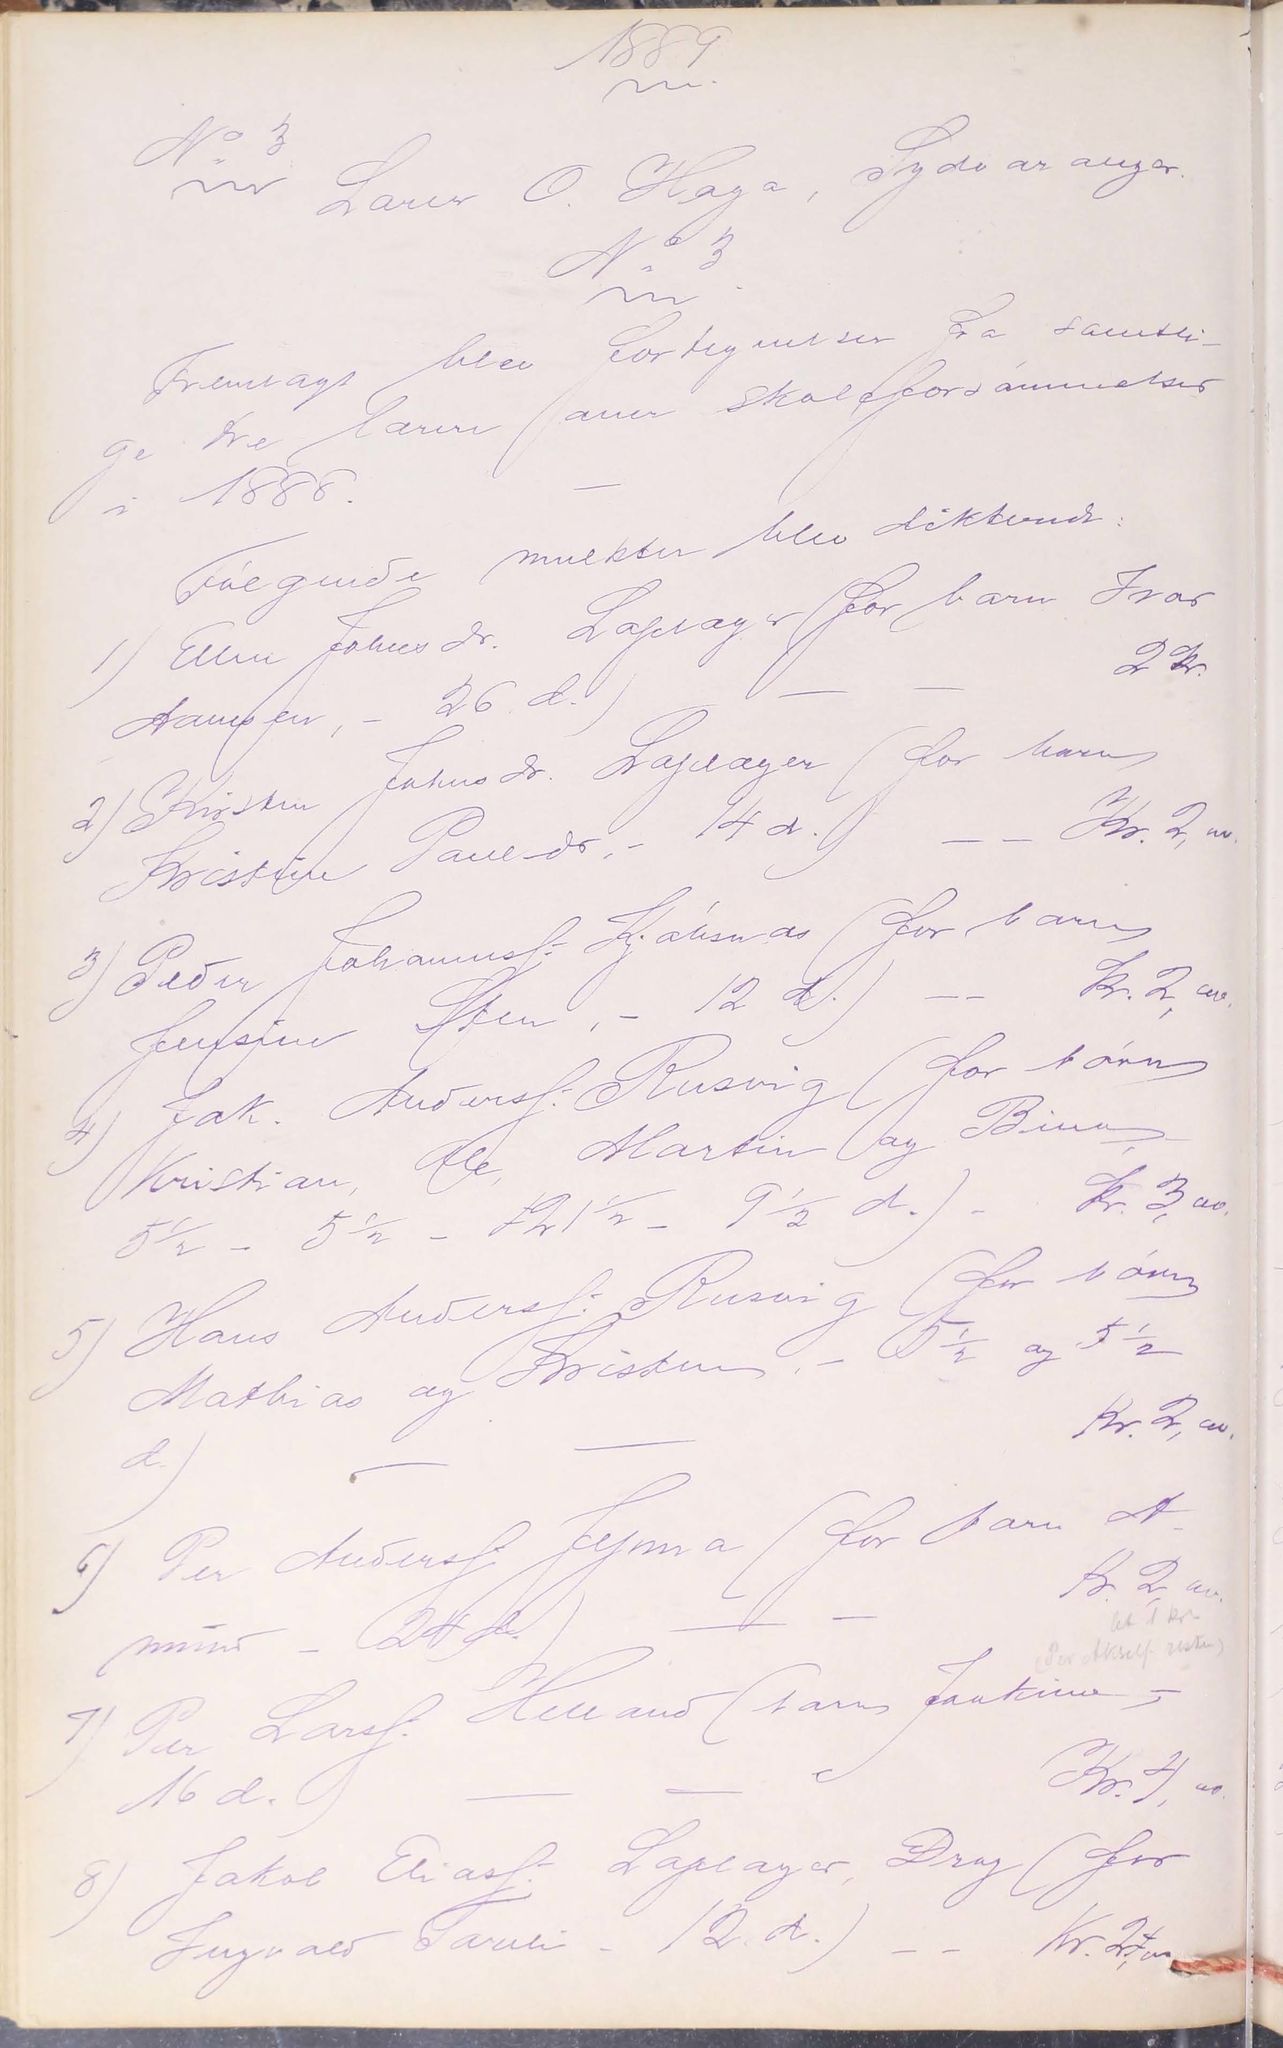 1889
No 3
Lærer O. Haga, Sydvaranger.
No 3
Fremlagt blev fortegnelser fra samtli-
ge tre lærere over skoleforsømmelser
i 1888. —
Følgende mulkter blev dikterede:
1) Ellen Johnsdr. Laplæger (for barn Ivar
Hansen, - 26 d.) — — 2 Kr.
2) Kirsten Johnsdr. Laplæger (for barn
Kristine Paulsdr., - 14 d.) — — Kr. 2,00.
3) Peder Johannesf. (for barn
Jensine Sten, - 12 d.) — — Kr. 2,00.
4) Jak. Andersf. Rusvig (for børn
Kristian, Ole, Martin og
5½ - 5½ - 1½ - 9½ d.) - Kr. 3,00.
5) Hans Andersf. Rusvig (for børn
Mathias og Kristen, - 5½ og 5½
d.) — — Kr. 2,00.
6) Per Andersf. (for barn A-
mund - 24 d.) — — Kr. 2,00.
bet 1 kr.
7) Per Larsf. Helland (barn -
16 d.) — — Kr. 4,00.
8) Jakob Eliasf. Laplæger, Dreng (for
Ingvald - 12 d.) — —